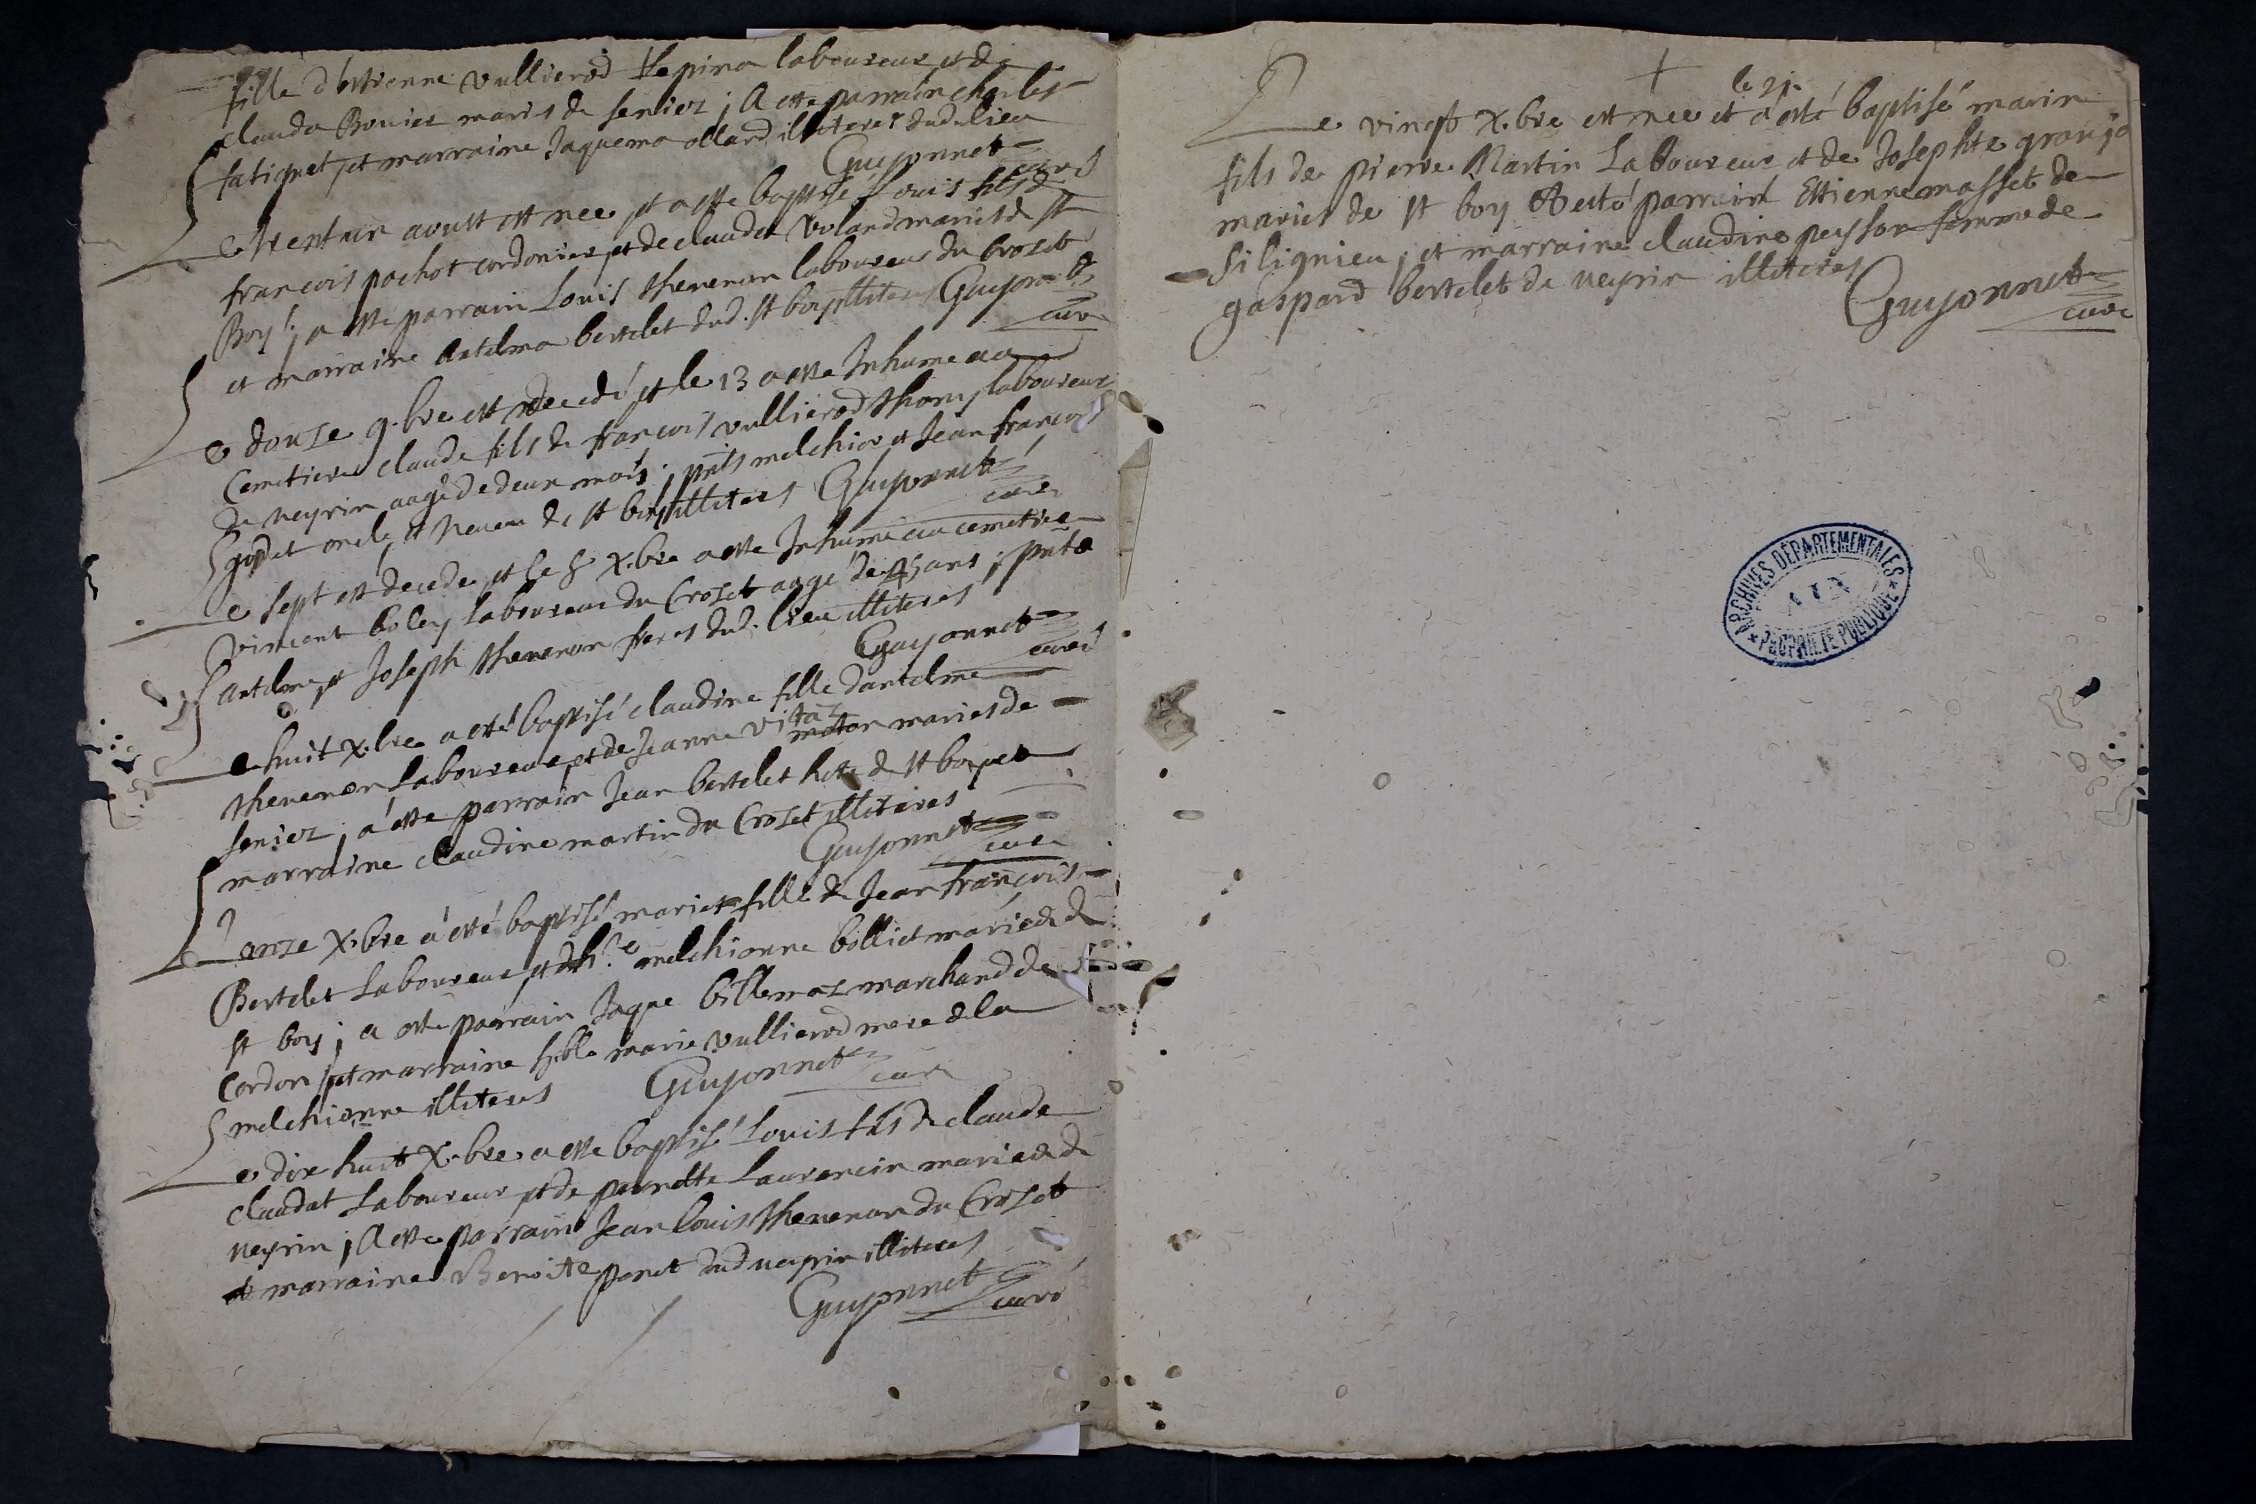 fille d'estienne vullierod Lepina laboureur et de
clauda Bovier mariés de seniez ; A esté parrain charles
fatignet et marraine Jaquema ollard illiteres dudit lieu
Guyonnet
curé
Le trentun aoust est nee et a esté baptisé Louis fils de
francois pochot cordonier et de clauda Voland mariés de St
Boy ; a esté parrain Louis thevenon laboureur du Croset
et marraine Antelma bertelet dud. St boy illiteres Guyonnet
curé
Le douze 9.bre est decedé et le 13 a esté Inhumé au
Cemetiere claude fils de francois vullierod thomy laboureur
de neyrin aagé de deux mois ; pnts melchior et Jean francois
godet oncle et neveu de St boy illiteres Guyonnet
curé
Le sept est decedé et le 8 X.bre a esté Inhumé au cemetiere
vincent boley laboureur du Croset aagé de 45 ans ; pnts
antelme et Joseph thevenon freres dud. lieu illiteres
Guyonnet
curé
Le huit X.bre a esté baptisé claudine fille dantelme
thevenon Laboureur et de Jeanne vitoz
mariés de
seniez ; a esté parrain Jean bertelet de St boy et
marraine claudine martin du Croset illiteres
Guyonnet
curé
Le onze X.bre a esté baptisé mariete fille de Jean francois
Bertelet Laboureur et de melchionne bolliet mariés de
St boy ; a esté parrain Jaque billemaz marchand de
Cordon et marraine marie vullierod mere de la
melchionne illiteres Guyonnet
curé
Le dix huit X.bre a esté baptisé Louis fils de claude
claudat Laboureur et de pernette Laurencin mariés de
neyrin ; A esté parrain Jean Louis thevenon du Croset
et marraine Benoite ponet dud neyrin illiteres
Guyonnet
curé
le 21.
Le vingt X.bre est nee et a esté baptisé marin
fils de pierre Martin Laboureur et de Josephte granja
mariés de St boy A esté parrain Estienne masset de
Silignieu ; et marraine claudine peysson femme de
gaspard bertelet de neyrin illiteres
Guyonnet
curé
ARCHIVES DÉPARTEMENTALES
AIN
PROPRIÉTÉ PUBLIQUE